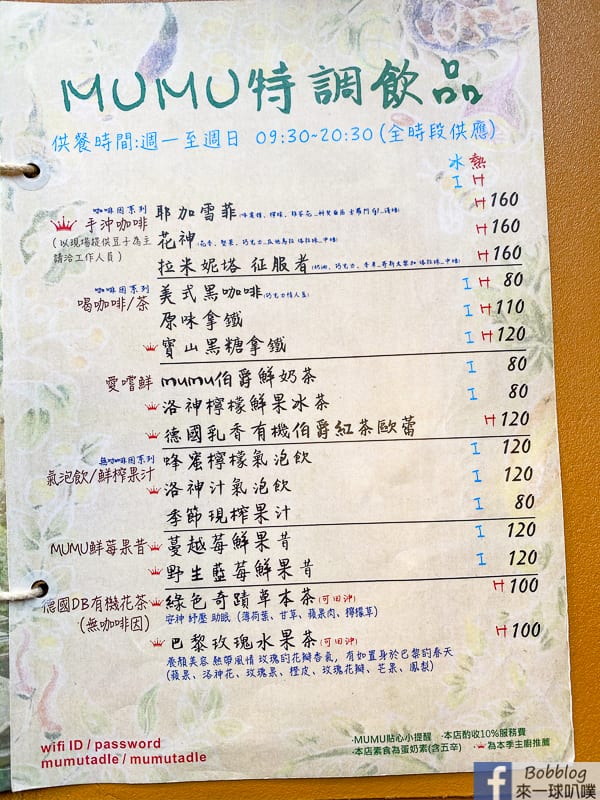 MUMU特調飲品
供餐時間:週一至週日 09:30~20:30(全時段供應)
冰 熱
I H
咖啡因系列
手沖咖啡
(以現場提供豆子為主
請洽工作人員)
耶加雪菲 H 160
花神 H 160
拉米妮塔 征服者 H 160
咖啡因系列
喝咖啡/茶
美式黑咖啡(巧克力情人豆) I H 80
原味拿鐵 I H 110
寶山黑糖拿鐵 I H 120
愛嚐鮮
mumu伯爵鮮奶茶 I 80
洛神檸檬鮮果冰茶 I 80
德國乳香有機伯爵紅茶歐蕾 H 120
無咖啡因系列
氣泡飲/鮮榨果汁
蜂蜜檸檬氣泡飲 I 120
洛神汁氣泡飲 I 120
季節現榨果汁 I 80
MUMU鮮莓果昔
蔓越莓鮮果昔 I 120
野生藍莓鮮果昔 I 120
德國DB有機花茶
(無咖啡因)
綠色奇蹟草本茶(可回沖) H 100
安神 紓壓 助眠 (薄荷葉、甘草、蘋果肉、檸檬草)
巴黎玫瑰水果茶(可回沖) H 100
養顏美容 熱帶風情 玫瑰的花瓣香氣，有如置身於巴黎的春天
(蘋果、洛神花、玫瑰果、橙皮、玫瑰花瓣、芒果、鳳梨)
wifi ID / password
mumutadle / mumutadle
·MUMU貼心小提醒 ·本店酌收10%服務費
·本店素食為蛋奶素(含五辛) ·為本季主廚推薦
f Bobblog
來一球叭噗